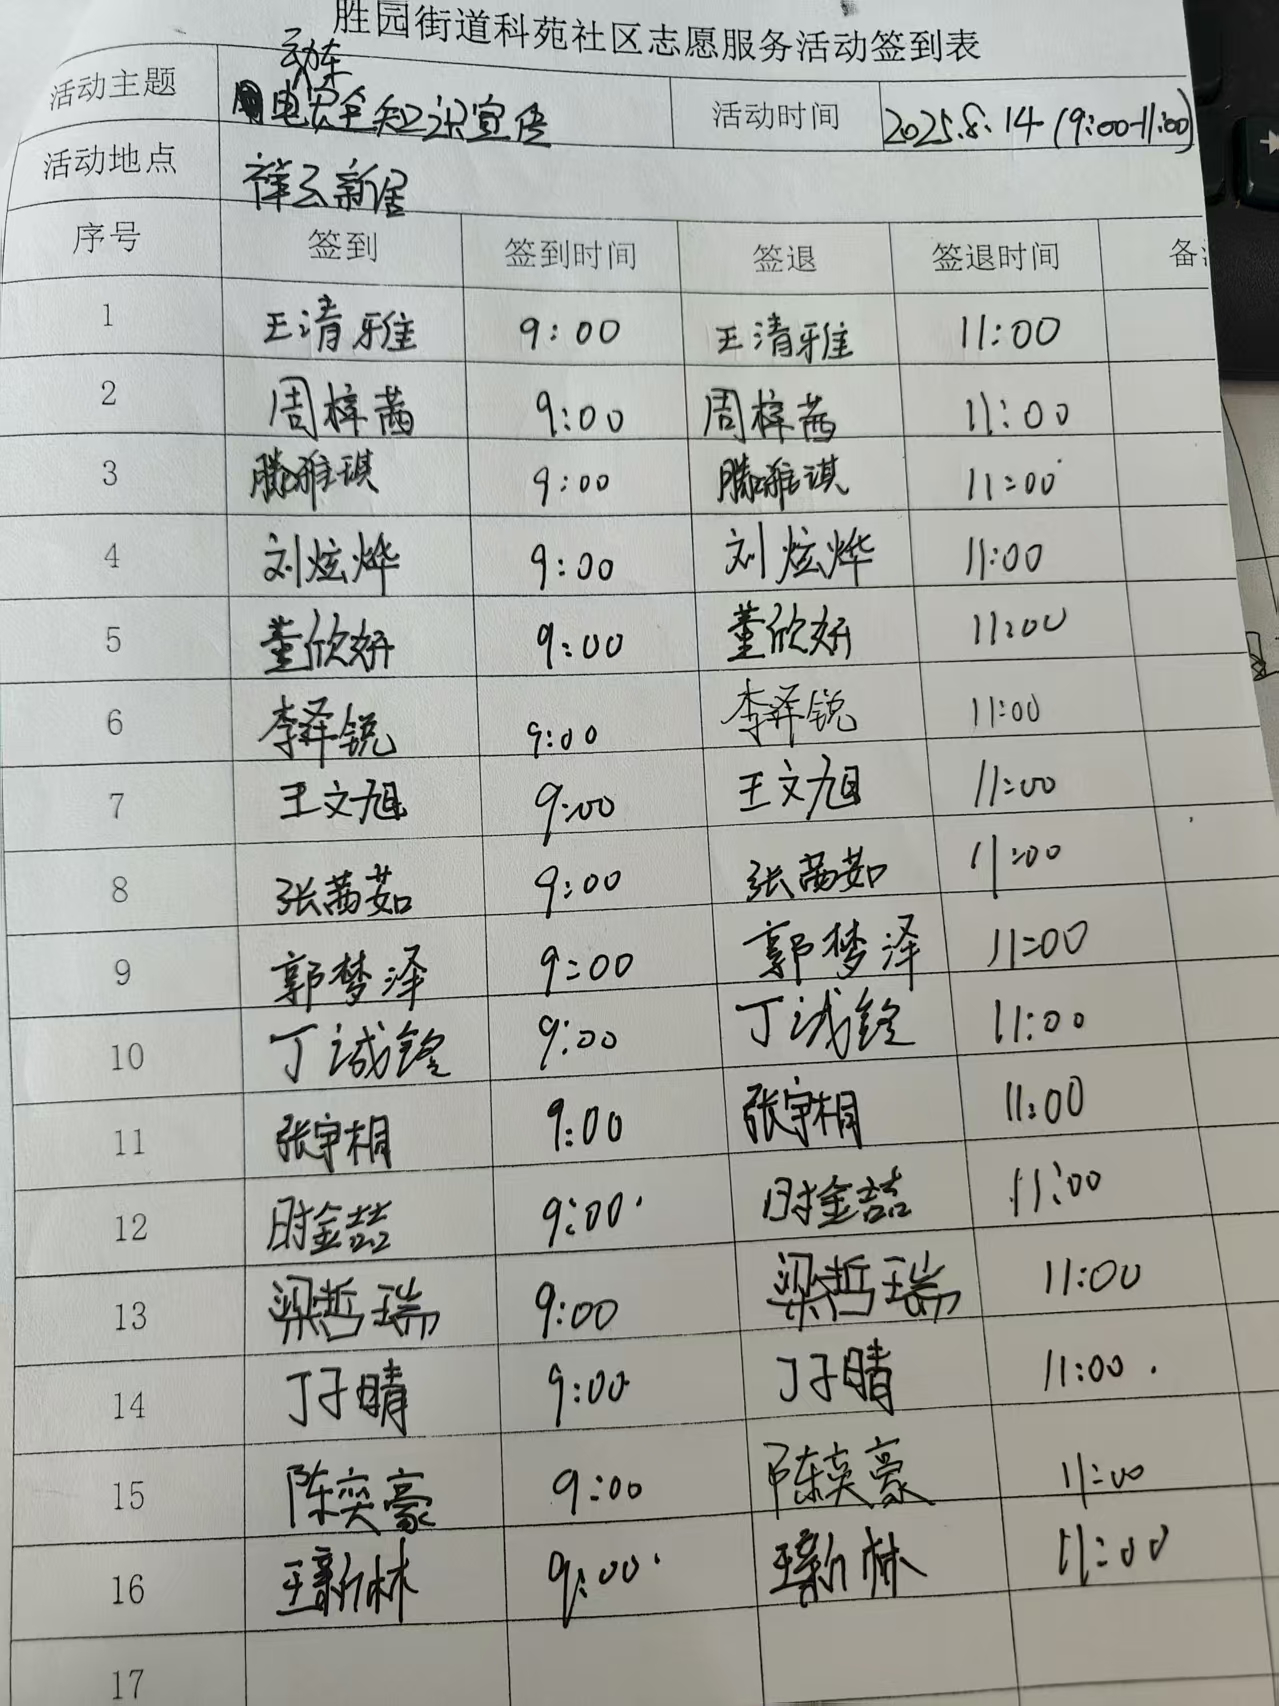 胜园街道科苑社区志愿服务活动签到表
活动主题 电动车安全知识宣传 活动时间 2025.8.14 (9:00-11:00)
活动地点 祥云新居
序号 签到 签到时间 签退 签退时间 备
1 王清雅 9:00 王清雅 11:00
2 周梓茜 9:00 周梓茜 11:00
3 滕雅琪 9:00 滕雅琪 11:00
4 刘炫烨 9:00 刘炫烨 11:00
5 董欣妍 9:00 董欣妍 11:00
6 李泽锐 9:00 李泽锐 11:00
7 王文旭 9:00 王文旭 11:00
8 张茜茹 9:00 张茜茹 11:00
9 郭梦泽 9:00 郭梦泽 11:00
10 丁诚铨 9:00 丁诚铨 11:00
11 张宇桐 9:00 张宇桐 11:00
12 时金喆 9:00 时金喆 11:00
13 梁哲瑞 9:00 梁哲瑞 11:00
14 丁子晴 9:00 丁子晴 11:00
15 陈奕豪 9:00 陈奕豪 11:00
16 王新林 9:00 王新林 11:00
17